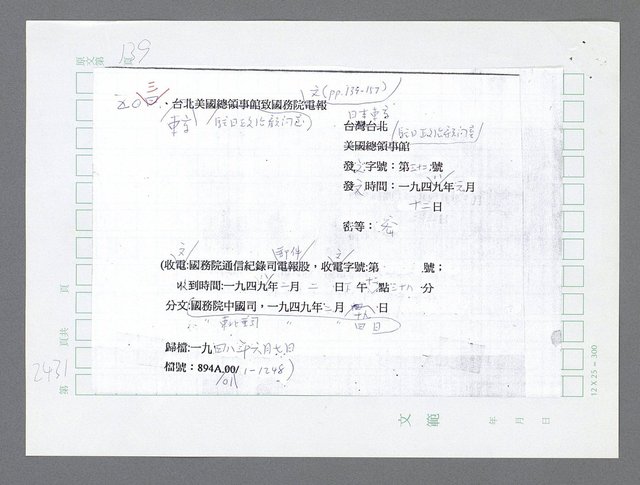 原文第 139 頁
三
・台北美國總領事館致國務院電報
文(pp.139-157)
東京
駐日政治顧問處)
日本東京
台灣台北
駐日政治顧問處
美國總領事館
發文字號：第三十二號
發文時間：一九四九年元月
十二日
密等：
(收電:國務院通信紀錄司電報股，收電字號:第 號；
文 郵件 文
收到時間:一九四九年二月二日下午十二點三十八分
分文:國務院中國司，一九四九年二月 日
〃 東北亞司 〃 四日
歸檔:一九四八年六月七日
檔號：894A.00/1-1248)
/01
2431
第 頁共 頁
文範
年 月 日
12 X 25 － 300